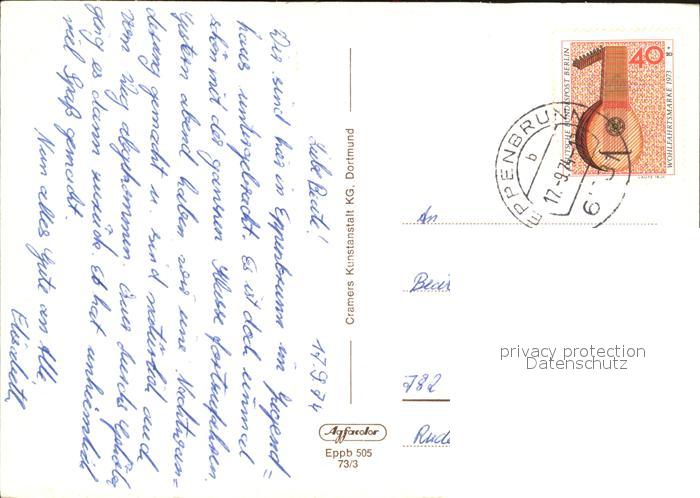 17.9.74
Liebe Beate!
Wir sind hier in Eppenbrunn im Jugend=
haus untergebracht. Es ist doch einmal
schön mit der ganzen Klasse fortzufahren.
Gestern abend haben wir eine Nachtwan-
derung gemacht u. sind natürlich auch
vom Weg abgekommen. Quer durchs
ging es dann zurück. Es hat unheimlich
viel Spaß gemacht.
Nun alles Gute an Alle
Elisabeth
Cramers Kunstanstalt KG, Dortmund
Agfacolor
Eppb 505
73/3
DEUTSCHE BUNDESPOST BERLIN
40
WOHLFAHRTSMARKE 1973
LAUTE 18.JH
EPPENBRUNN
b
17.-9.74
6
An
Bea
782
Rude
privacy protection
Datenschutz